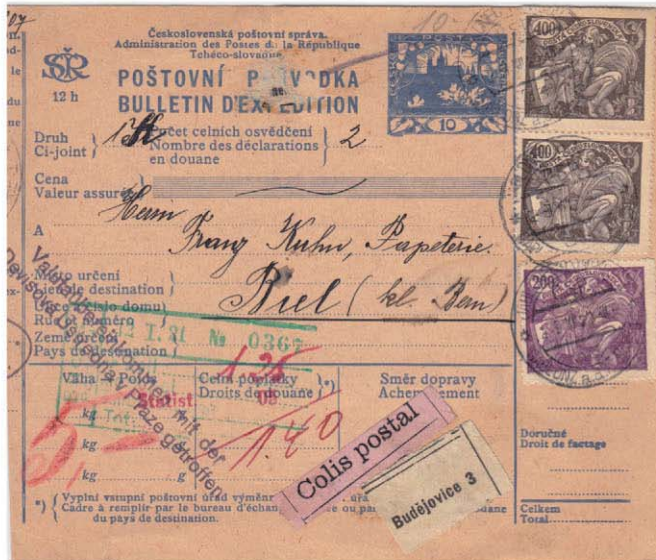 Československá poštovní správa.
Administration des Postes de la République
Tchéco-slovaque
SŘ
12 h
POŠTOVNÍ PRŮVODKA
BULLETIN D'EXPÉDITION
10
400
400
200
Druh
Ci-joint
Počet celních osvědčení
Nombre des déclarations
en douane
2
Cena
Valeur assurée
A
Herrn
Franz Kuhn, Papeterie.
Místo určení
Lieu de destination
Biel (kt. Bern)
Ulice (číslo domu)
Rue et numéro
Země určení
Pays de destination
I. 21 № 0367
Valuta
mit der
Devisová
Praze getroffen
Váha - Poids
kg g
kg g
kg g
Statist.
Celní poplatky
Droits de douane *)
1.25
1.40
Směr dopravy
Acheminement
Colis postal
Budějovice 3
Doručné
Droit de factage
Celkem
Total
*) Vyplní vstupní poštovní úřad výměn
Cadre à remplir par le bureau d'échan
du pays de destination.